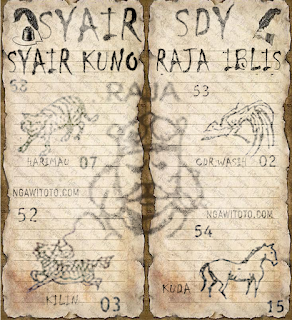 SYAIR SDY
SYAIR KUNO RAJA IBLIS
RAJA
53
HARIMAU 07
NGAWITOTO.COM
52
KILIN 03
53
CDRWASIH 02
NGAWITOTO.COM
54
KUDA 15